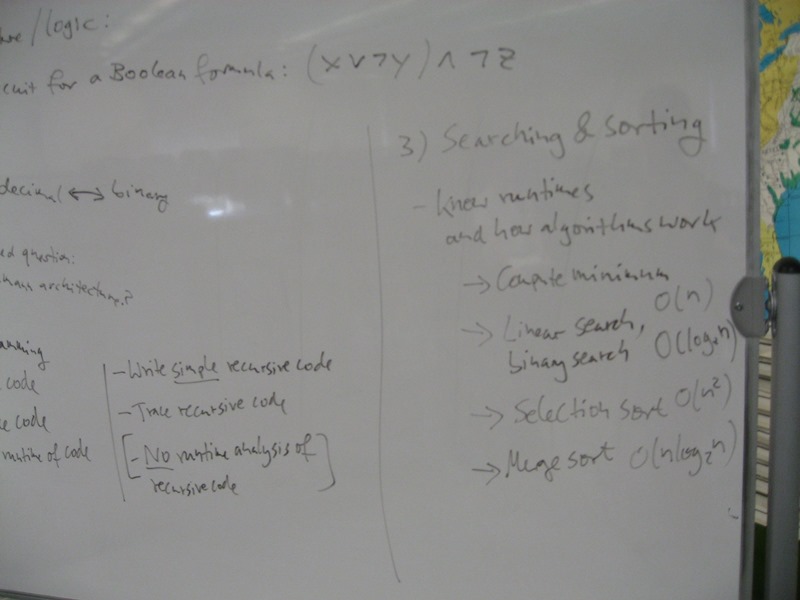 /logic:
for a Boolean formula: (X ∨ ¬Y) ∧ ¬Z
decimal ↔ binary
question:
architecture?
code
code
runtime of code
- Write simple recursive code
- Trace recursive code
[- No runtime analysis of
recursive code]
3) Searching & sorting
- Know runtimes
and how algorithms work
→ Compute minimum
O(n)
→ Linear search,
binary search O(log₂n)
→ Selection sort O(n²)
→ Merge sort O(nlog₂n)